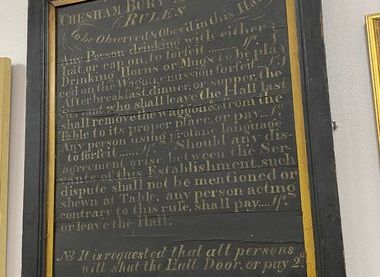 CHESHAM BURY
RULES
to be Observed & Obey'd in this Hall
Any Person drinking with either
hat or cap on, to forfeit
Drinking Horns or Mugs to be pla
ced on the Waggon, omission forfeit
After breakfast, dinner, or supper, the
who shall leave the Hall last
shall remove the waggon & from the
Table to its proper place, or pay
Any person using profane language
to forfeit Should any dis-
agreement arise between the Ser-
vants of this Establishment, such
dispute shall not be mentioned or
shewn at Table, any person acting
contrary to this rule, shall pay
or leave the Hall.
NB It is requested that all persons
will shut the Hall Door, or pay 2d